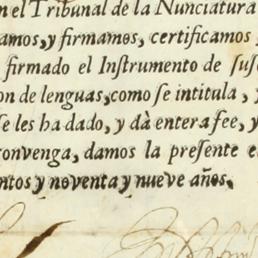 n el Tribunal de la Nunciatura
amos, y firmamos, certificamos y
firmado el Instrumento de sus
on de lenguas, como se intitula, y
se les ha dado, y dà entera fee, y
convenga, damos la presente e
ntos y noventa y nueve años.